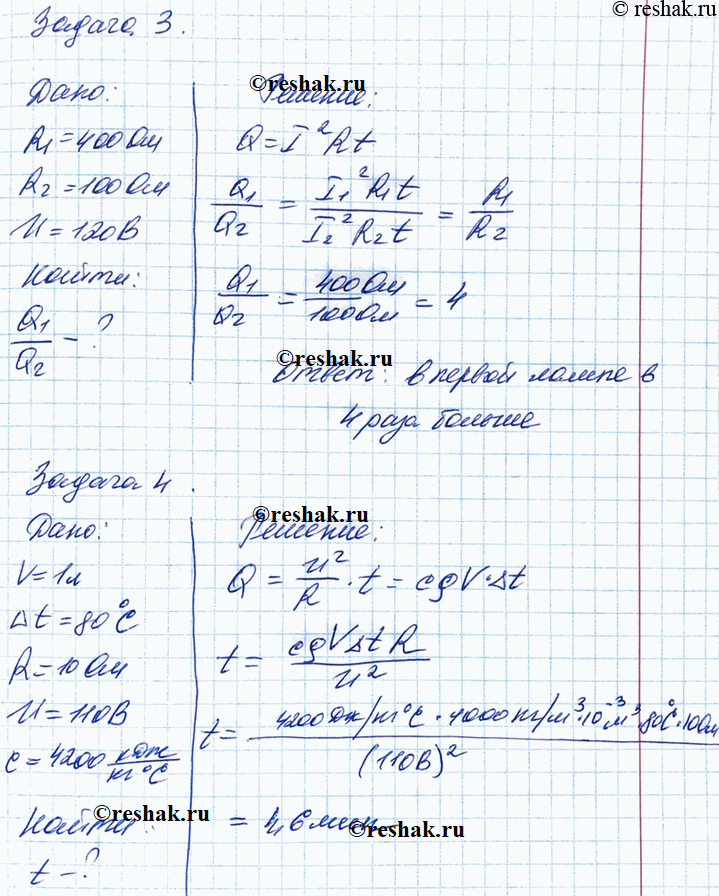 © reshak.ru
Задача 3.
Дано:
R1=400Ом
R2=100Ом
U=120В
Найти:
Q1/Q2 - ?
©reshak.ru
Решение:
Q=I²Rt
Q1/Q2 = I1²R1t/I2²R2t = R1/R2
Q1/Q2 = 400Ом/100Ом = 4
©reshak.ru
Ответ: в первой лампе в
4 раза больше
Задача 4.
Дано:
V=1л
Δt=80°C
R=10Ом
U=110В
c=4200 кДж/кг°C
Найти:
t-?
©reshak.ru
Решение:
Q = U²/R · t = cρV·Δt
t = cρVΔtR/U²
t = 4200Дж/кг°C · 1000кг/м³·10⁻³м³·80°C·10Ом/(110В)²
©reshak.ru
= 4,6 мин
©reshak.ru